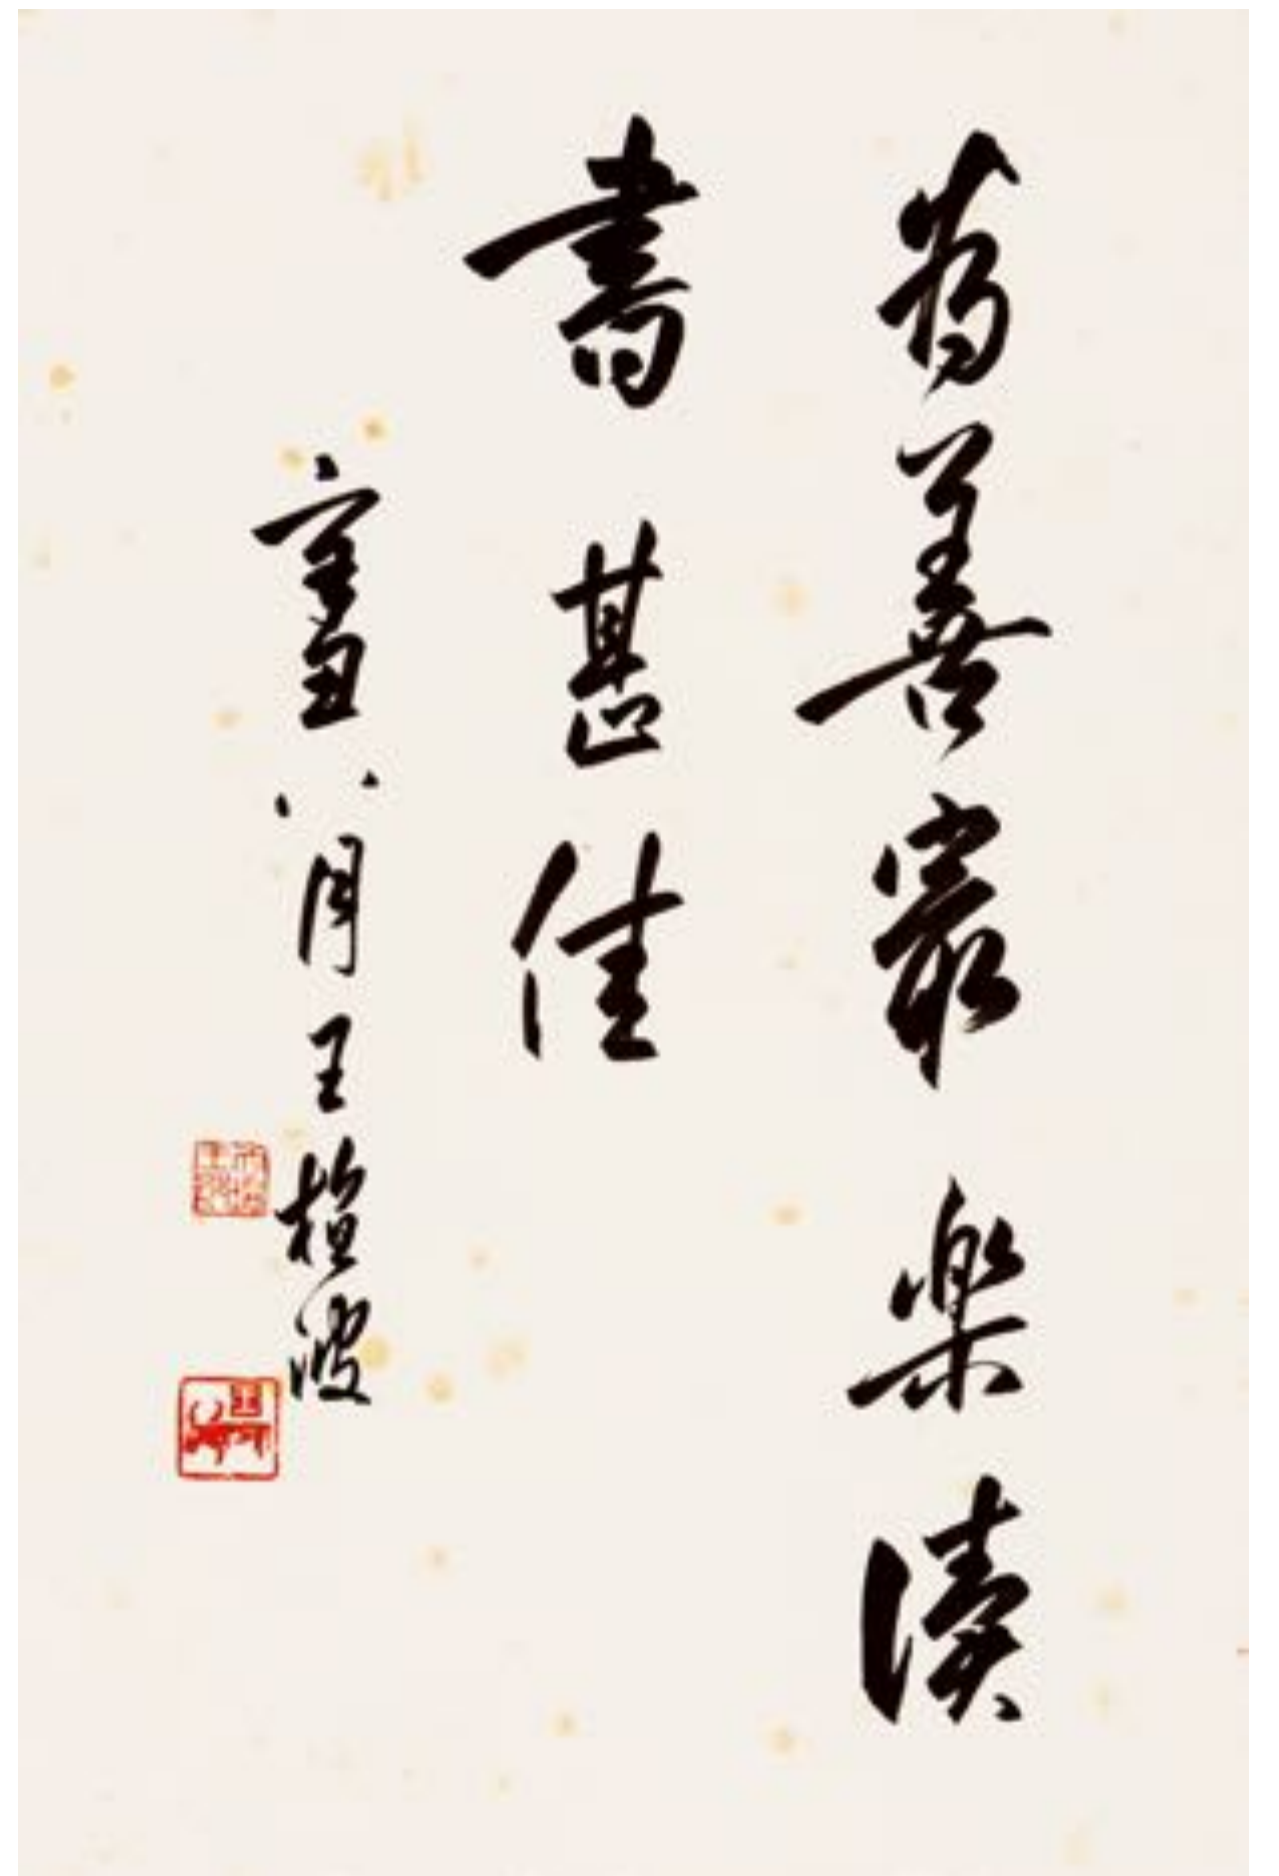 為善最樂讀
書甚佳
八月王植波